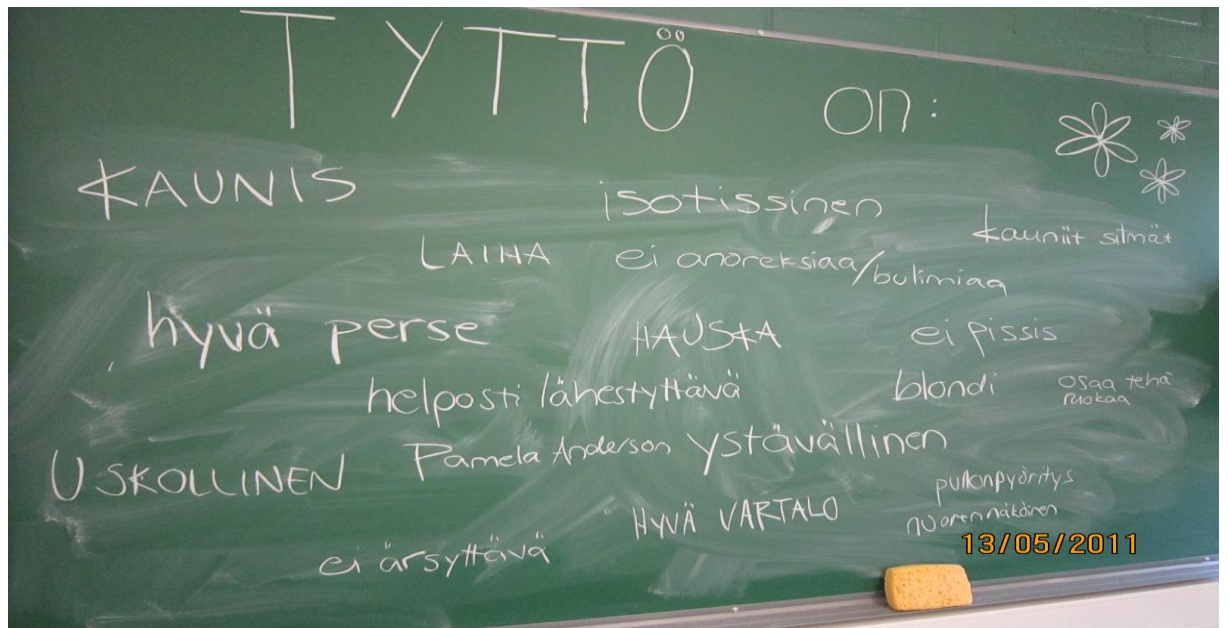 TYTTÖ on:
KAUNIS
isotissinen
kauniit silmät
LAIHA
ei anoreksiaa/bulimiaa
hyvä perse
HAUSKA
ei pissis
helposti lähestyttävä
blondi
osaa tehä
ruokaa
USKOLLINEN
Pamela Anderson
ystävällinen
pullonpyöritys
HYVÄ VARTALO
nuorennäköinen
ei ärsyttävä
13/05/2011